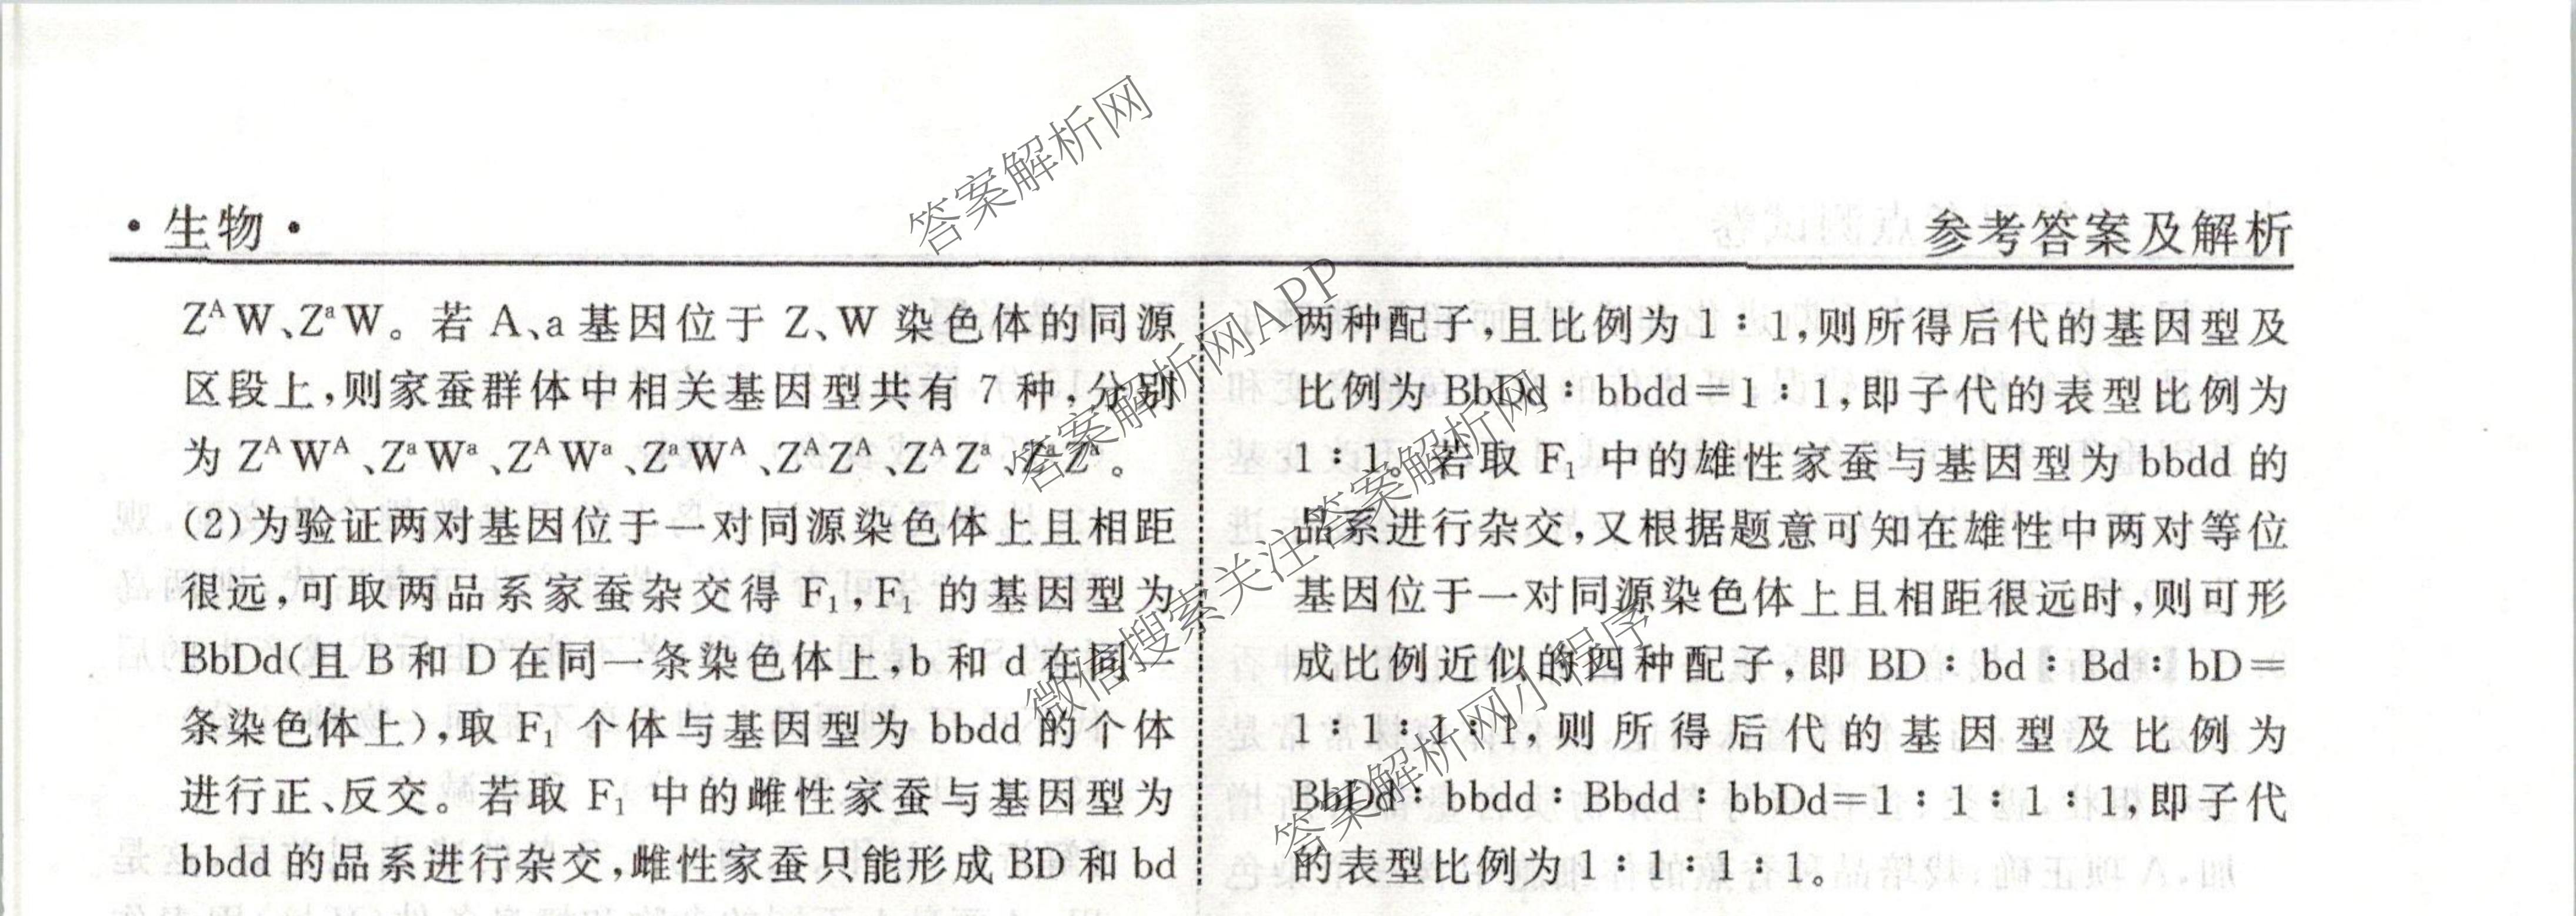 ·生物·
参考答案及解析
ZᴬW、ZᵃW。若 A、a 基因位于 Z、W 染色体的同源
区段上,则家蚕群体中相关基因型共有 7 种,分别
为 ZᴬWᴬ、ZᵃWᵃ、ZᴬWᵃ、ZᵃWᴬ、ZᴬZᴬ、ZᴬZᵃ、ZᵃZᵃ。
(2)为验证两对基因位于一对同源染色体上且相距
很远,可取两品系家蚕杂交得 F₁,F₁ 的基因型为
BbDd(且 B 和 D 在同一条染色体上,b 和 d 在同一
条染色体上),取 F₁ 个体与基因型为 bbdd 的个体
进行正、反交。若取 F₁ 中的雌性家蚕与基因型为
bbdd 的品系进行杂交,雌性家蚕只能形成 BD 和 bd
两种配子,且比例为 1∶1,则所得后代的基因型及
比例为 BbDd∶bbdd=1∶1,即子代的表型比例为
1∶1。若取 F₁ 中的雄性家蚕与基因型为 bbdd 的
品系进行杂交,又根据题意可知在雄性中两对等位
基因位于一对同源染色体上且相距很远时,则可形
成比例近似的四种配子,即 BD∶bd∶Bd∶bD=
1∶1∶1∶1,则所得后代的基因型及比例为
BbDd∶bbdd∶Bbdd∶bbDd=1∶1∶1∶1,即子代
的表型比例为 1∶1∶1∶1。
答案解析网
答案解析网APP
微信搜索关注答案解析网
答案解析网小程序